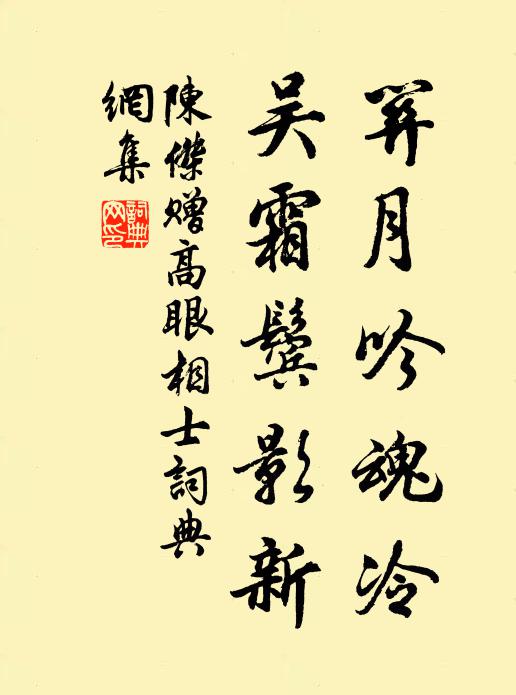 羿月吟魂冷
吴霜鬢影新
陳傑贈高眼相士詞典
網集
詞典
网印